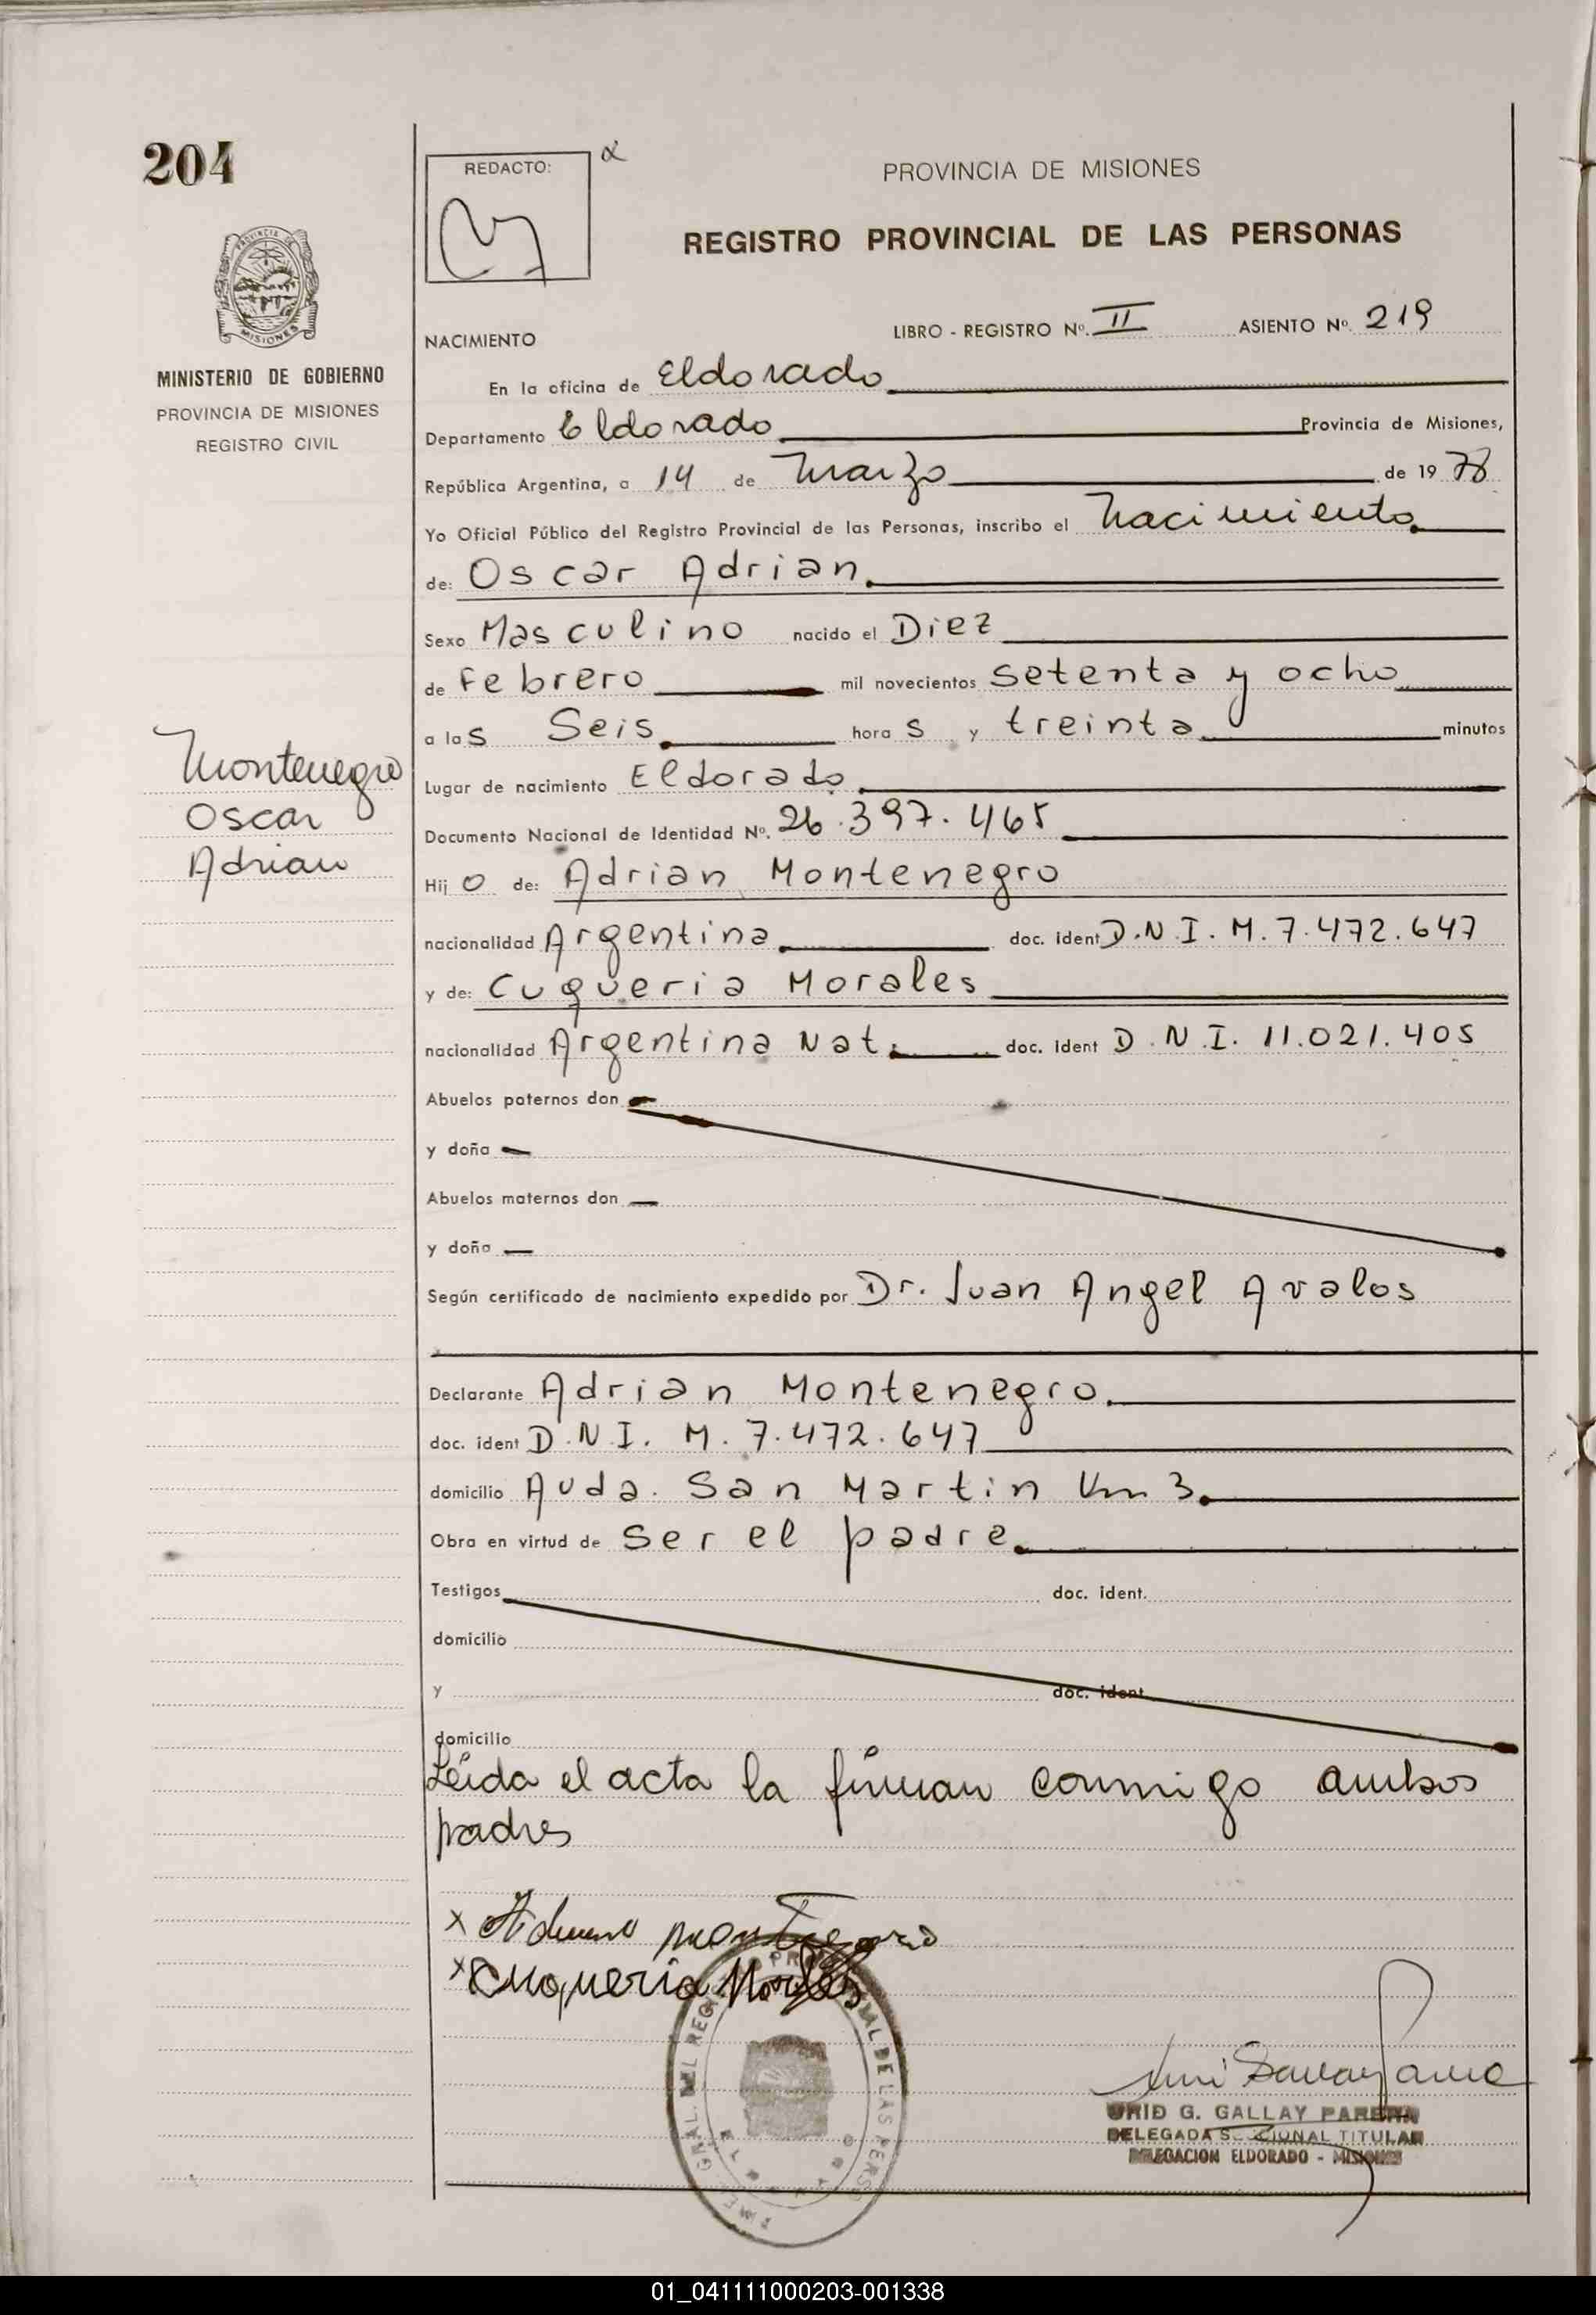 204
REDACTO:
PROVINCIA DE MISIONES
REGISTRO PROVINCIAL DE LAS PERSONAS
MINISTERIO DE GOBIERNO
PROVINCIA DE MISIONES
REGISTRO CIVIL
NACIMIENTO
LIBRO - REGISTRO Nº. II ASIENTO Nº. 219
En la oficina de Eldorado
Departamento Eldorado Provincia de Misiones,
República Argentina, a 14 de Marzo de 19 78
Yo Oficial Público del Registro Provincial de las Personas, inscribo el Nacimiento
de: Oscar Adrian.
Sexo Masculino nacido el Diez
de Febrero mil novecientos setenta y ocho
a las Seis. horas y treinta minutos
Montenegro
Oscar
Adrian
Lugar de nacimiento Eldorado.
Documento Nacional de Identidad Nº. 26.397.465
Hijo de: Adrian Montenegro
nacionalidad Argentina. doc. ident D.N.I. M. 7.472.647
y de: Cuqueria Morales
nacionalidad Argentina Nat. doc. ident D.N.I. 11.021.405
Abuelos paternos don
y doña
Abuelos maternos don
y doña
Según certificado de nacimiento expedido por Dr. Juan Angel Avalos
Declarante Adrian Montenegro.
doc. ident D.N.I. M. 7.472.647
domicilio Avda. San Martin Km 3.
Obra en virtud de ser el padre.
Testigos doc. ident.
domicilio
y doc. ident.
domicilio
Leida el acta la firman conmigo ambos
padres
x Adriano Montenegro
x Cuqueria Morales
URID G. GALLAY PARERA
DELEGADA SECCIONAL TITULAR
DELEGACION ELDORADO - MISIONES
01_041111000203-001338